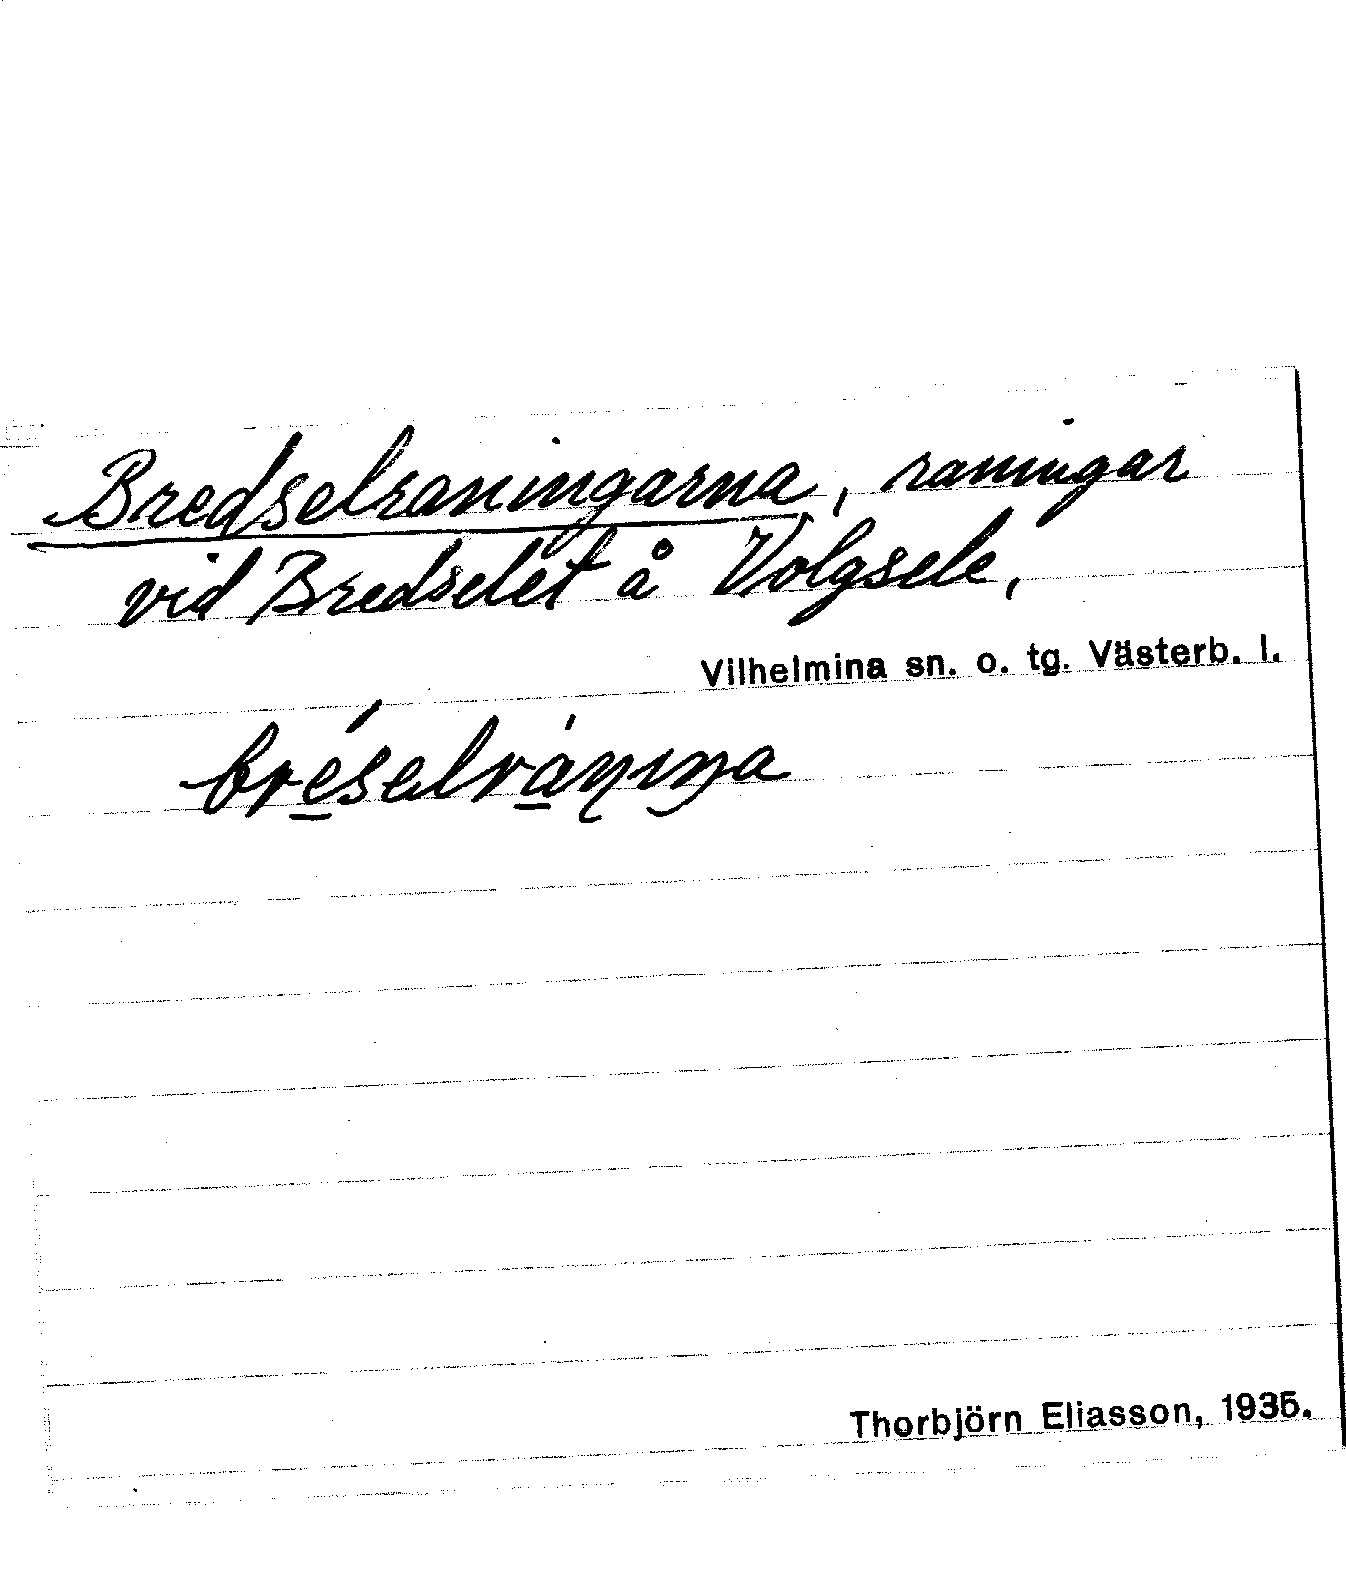 Bredselraningarna, raningar
vid Bredselet å Volgsele,
Vilhelmina sn. o. tg. Västerb. l.
bré̱selrá̱nıŋa
Thorbjörn Eliasson, 1935.